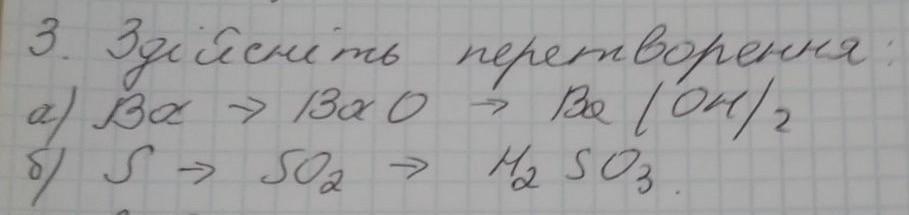 3. Здійсніть перетворення:
а) Ba → BaO → Ba(OH)2
б) S → SO2 → H2SO3.